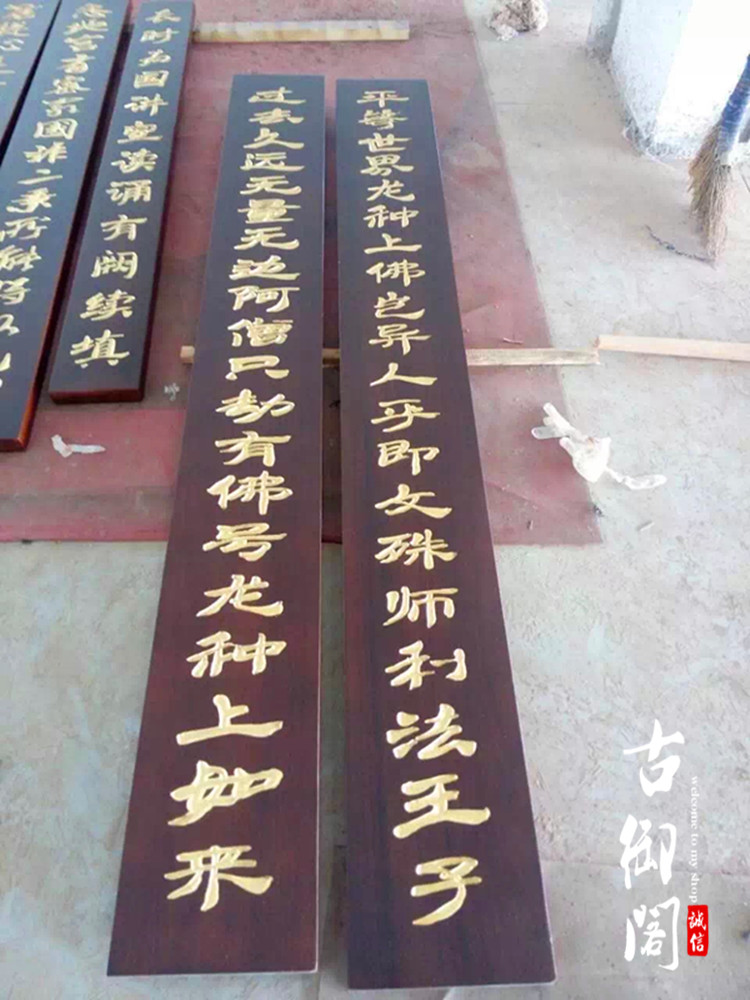 平等世界龙种上佛岂异人乎即文殊师利法王子
过去久远无量无边阿僧只劫有佛号龙种上如来
长时为国讲宣读诵有阙续填
国非二乘所能得
古御閣
welcome to my shop
誠信